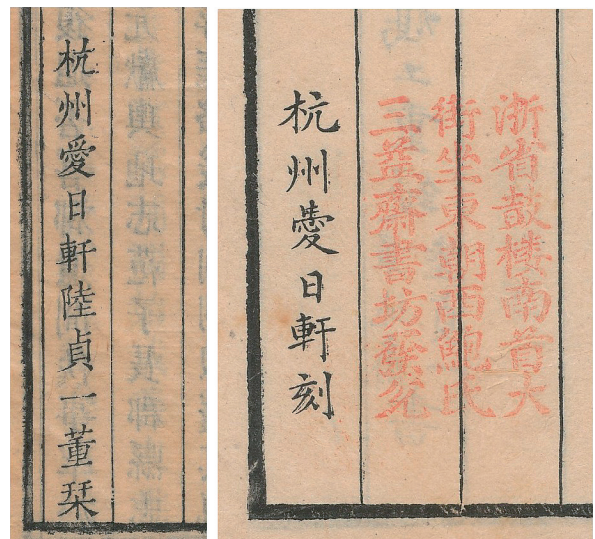 杭州愛日軒陸貞一董栞
浙省鼓楼南首大
街坐東朝西鮑氏
三益齋書坊發兌
杭州愛日軒刻